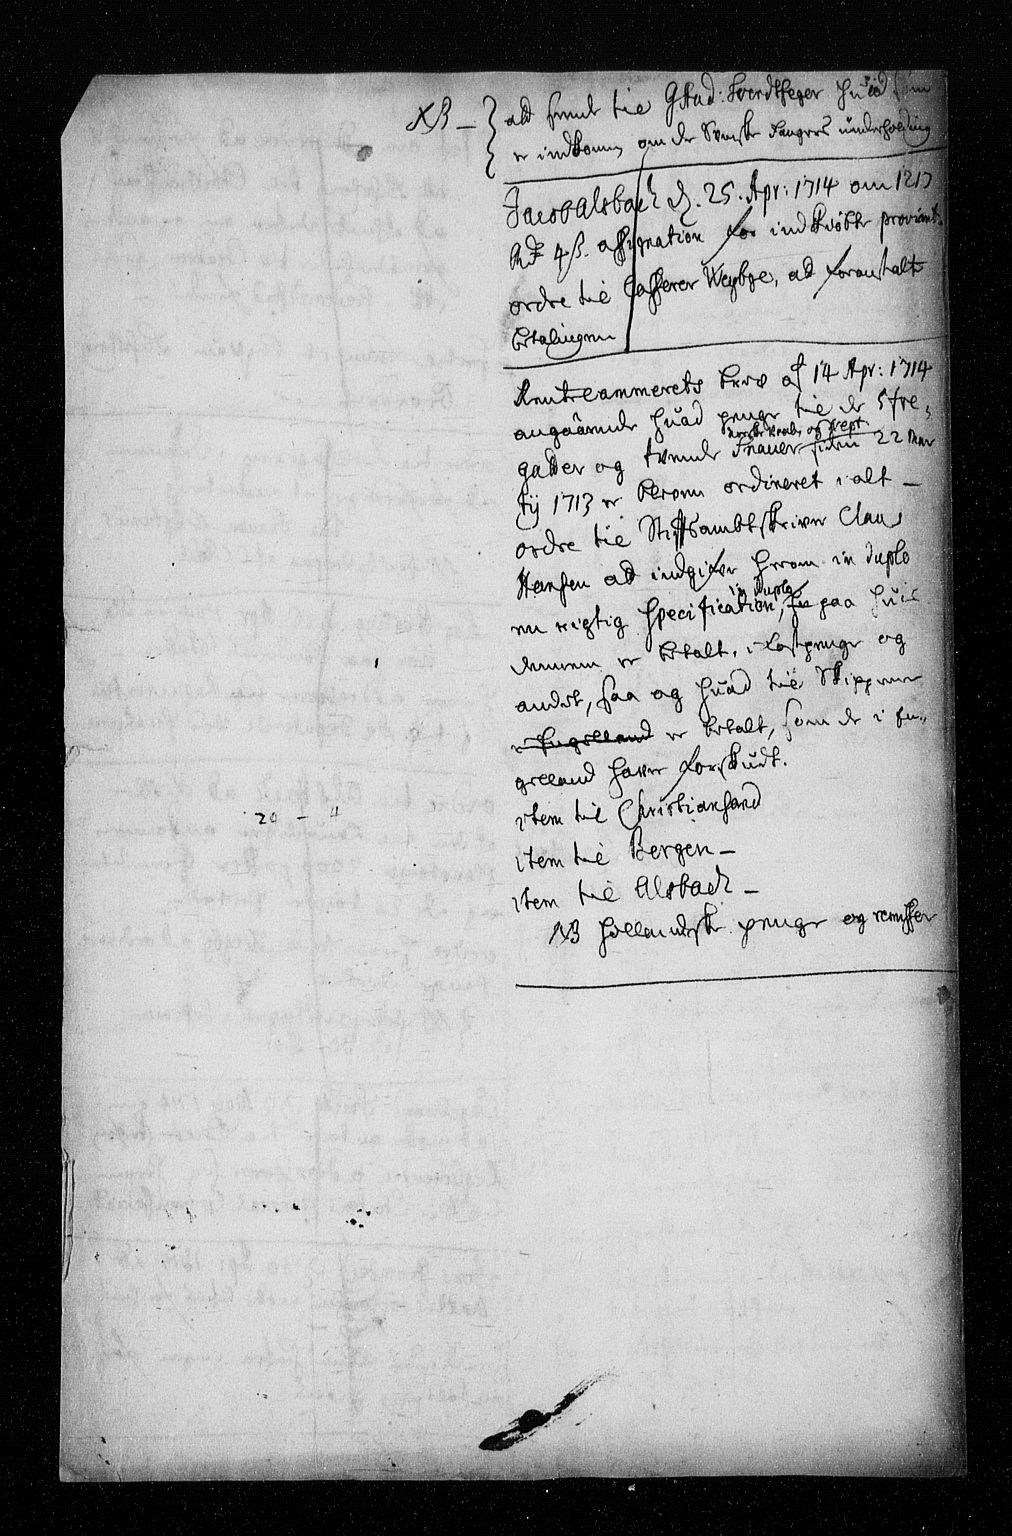 NB – ad sende til Gstad: Svendsteger huad som
er indkommen om de Svenske Fangers underholdning
Jacob Alsbach d. 25. Apr: 1714 om 1217
Rdr 4 ß. assignation for indkiøbte proviant.
ordre til Casserer Weybye, ad foranstalte
betalingen
Rentecammerets brev af 14 Apr: 1714
angaaende huad penge til de 5 fre,
norske Recrut og Kept
gatter og tvende siden 22 Mar
tij 1713 er bleven ordineret i alt –
ordre til Stiftsambtskriver Claus
Hansen ad indgifve herom in duplo
en rigtig Specification, in duplo paa huis
dennem er betalt, i kostpenge og
andet, saa og huad til Skipperne
i Engelland er betalt, som de i En=
gelland hafver forskudt.
item til Christiansand
item til Bergen –
item til Alsbach –
NB hollandske penge og remisser
20 – 4